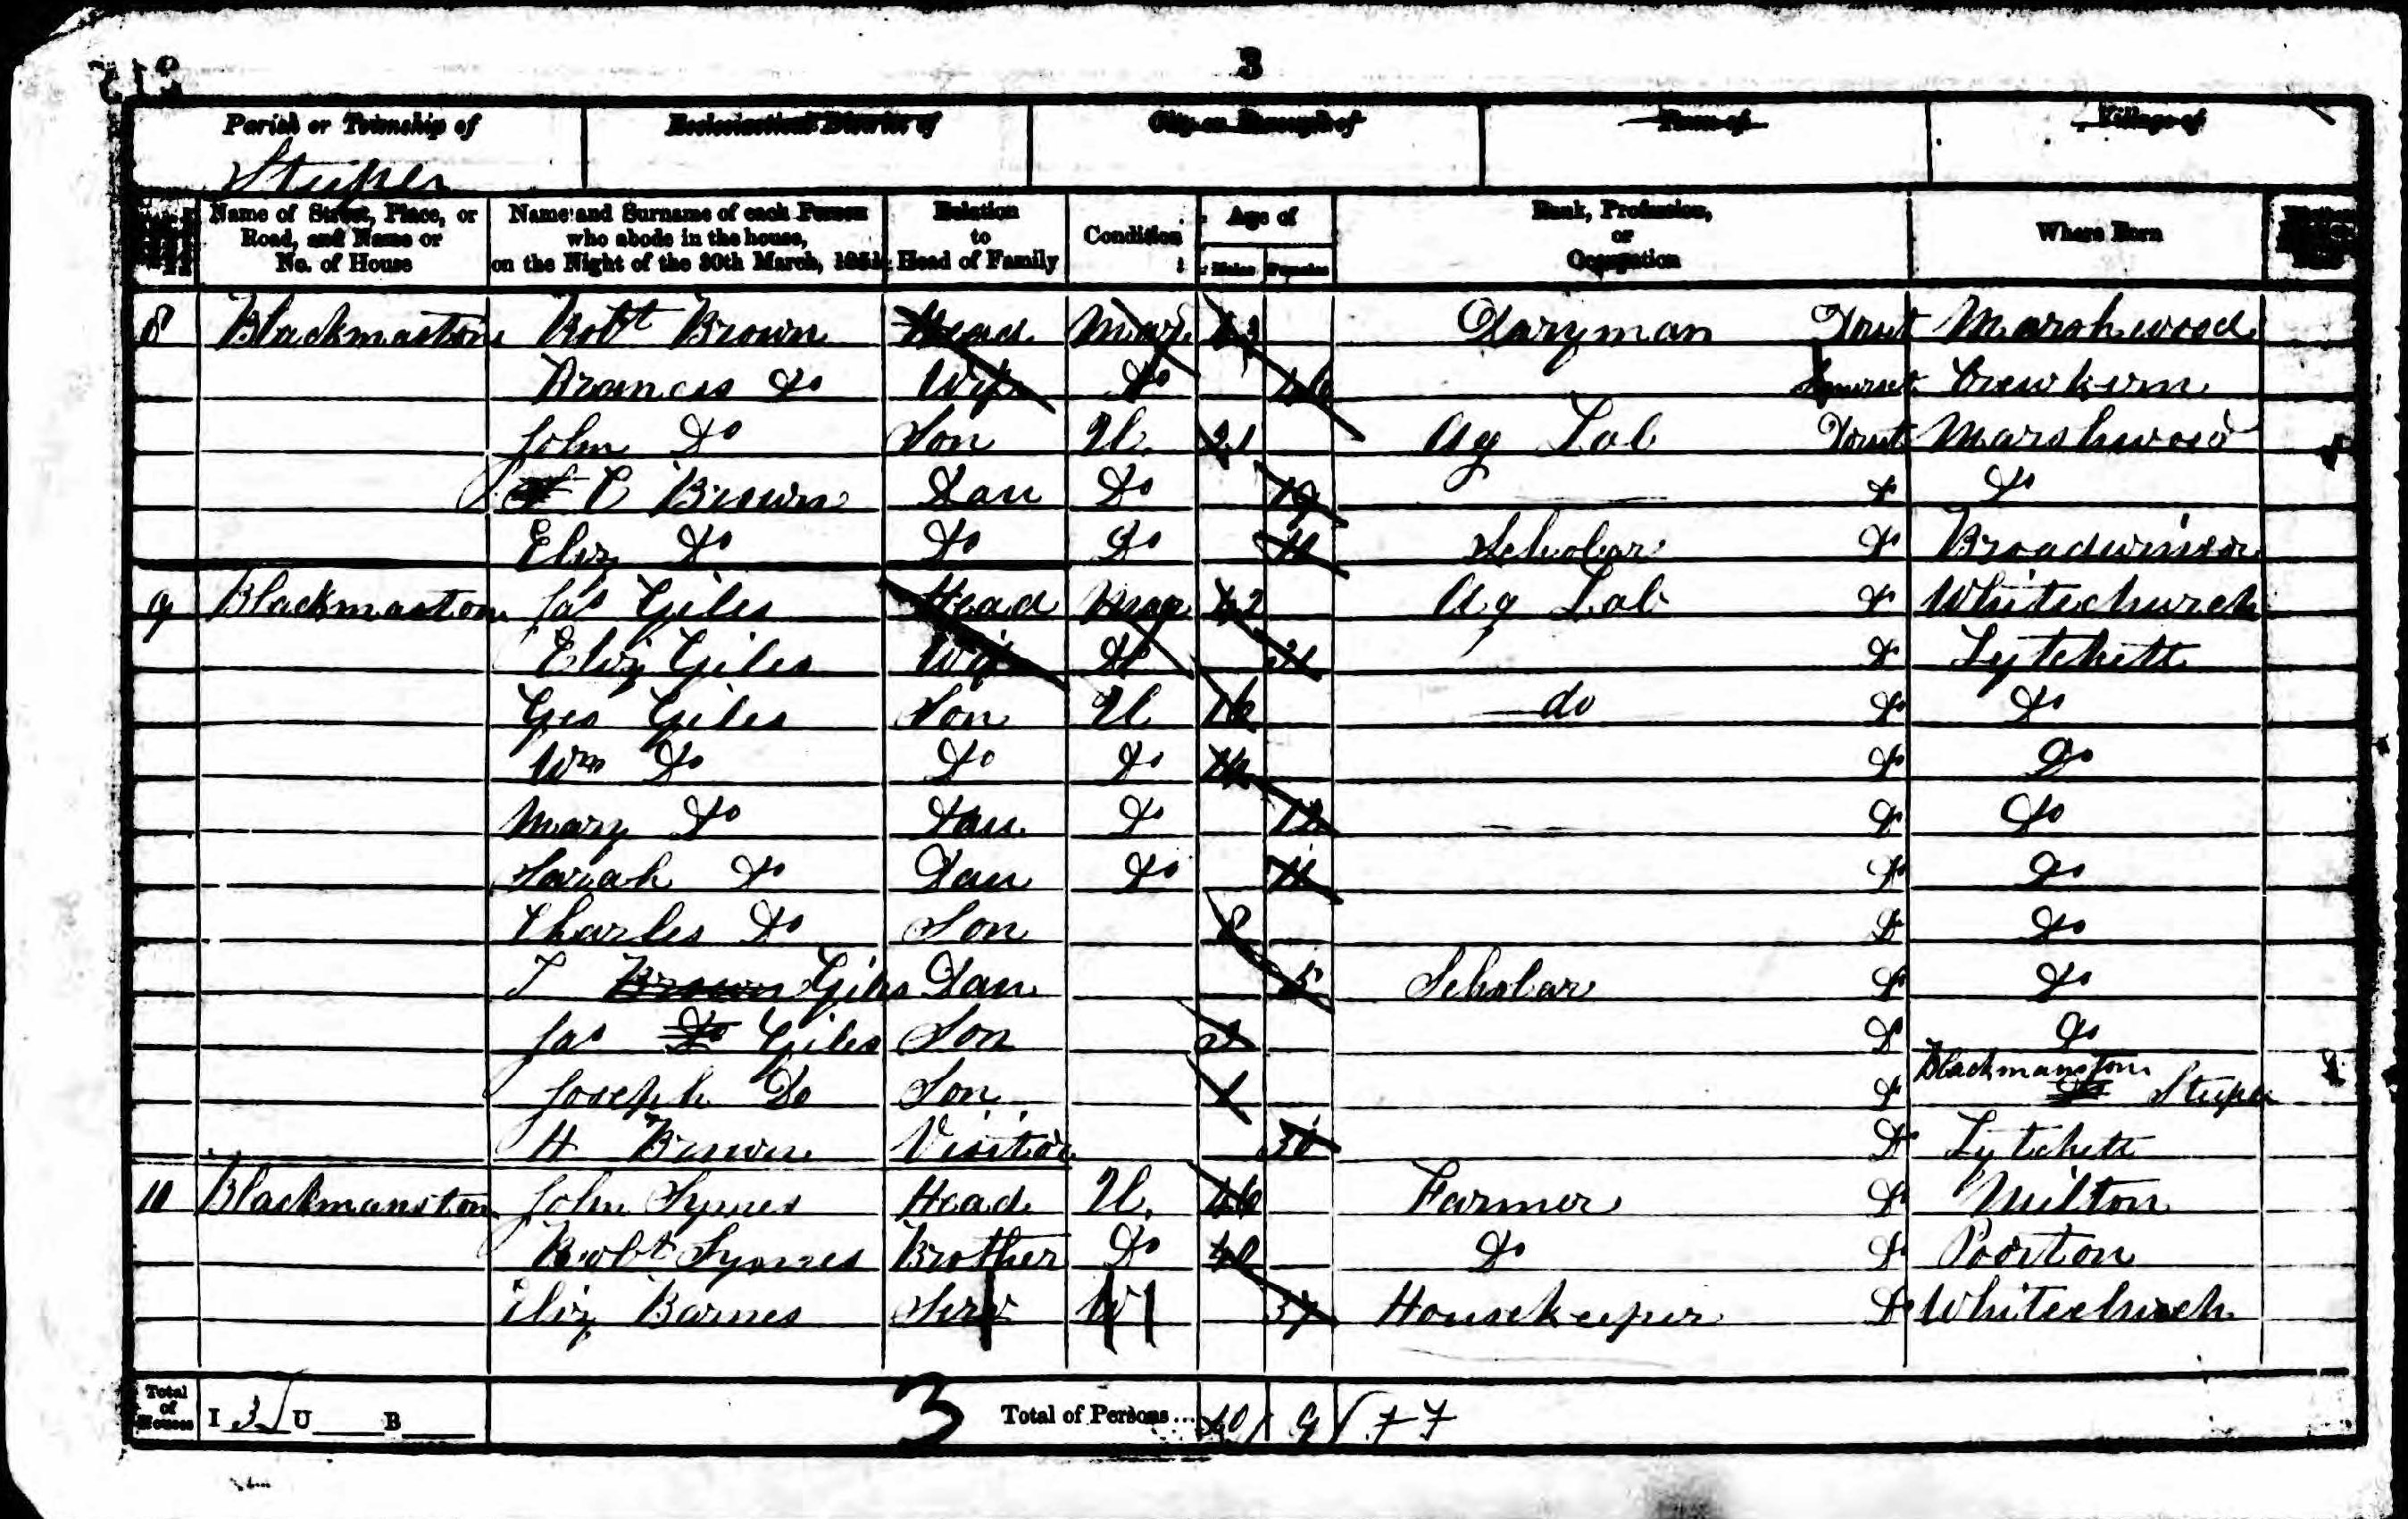 3
Parish or Township of Ecclesiastical District of City or Borough of Town of Village of
Steeple
Name of Street, Place, or Road, and Name or No. of House Name and Surname of each Person who abode in the house, on the Night of the 30th March, 1851 Relation to Head of Family Condition Age of Males Females Rank, Profession, or Occupation Where Born
8 Blackmaston Robt Brown Head Mar 43 Daryman Dorset Marshwood
Frances Do Wife Do 46 Somerset Crewkern
John Do Son U. 21 Ag Lab Dorset Marshwood
C Brown Dau Do 19 Do Do
Eliz Do Do Do 11 Scholar Do Broadwinsor
9 Blackmaston Jas Giles Head Mar 42 Ag Lab Do Whitechurch
Eliz Giles Wife Do Do Lytchett
Geo Giles Son U 16 do Do Do
Wm Do Do Do 14 Do Do
Mary Do Dau. Do 12 Do Do
Sarah Do Dau Do 11 Do Do
Charles Do Son 8 Do Do
J Brown Giles Dau 5 Scholar Do Do
Jas Do Giles Son 2 Do Do
Joseph Do Son 1 Do Blackmanston Do Steeple
H Brown Visitor 30 Do Lytchett
10 Blackmanston John Symes Head U. 46 Farmer Do Milton
Robt Symes Brother Do 40 Do Do Poorton
Eliz Barnes Serv W 37 Housekeeper Do Whitechurch
Total of Houses I 3 U B 3 Total of Persons... 10 9